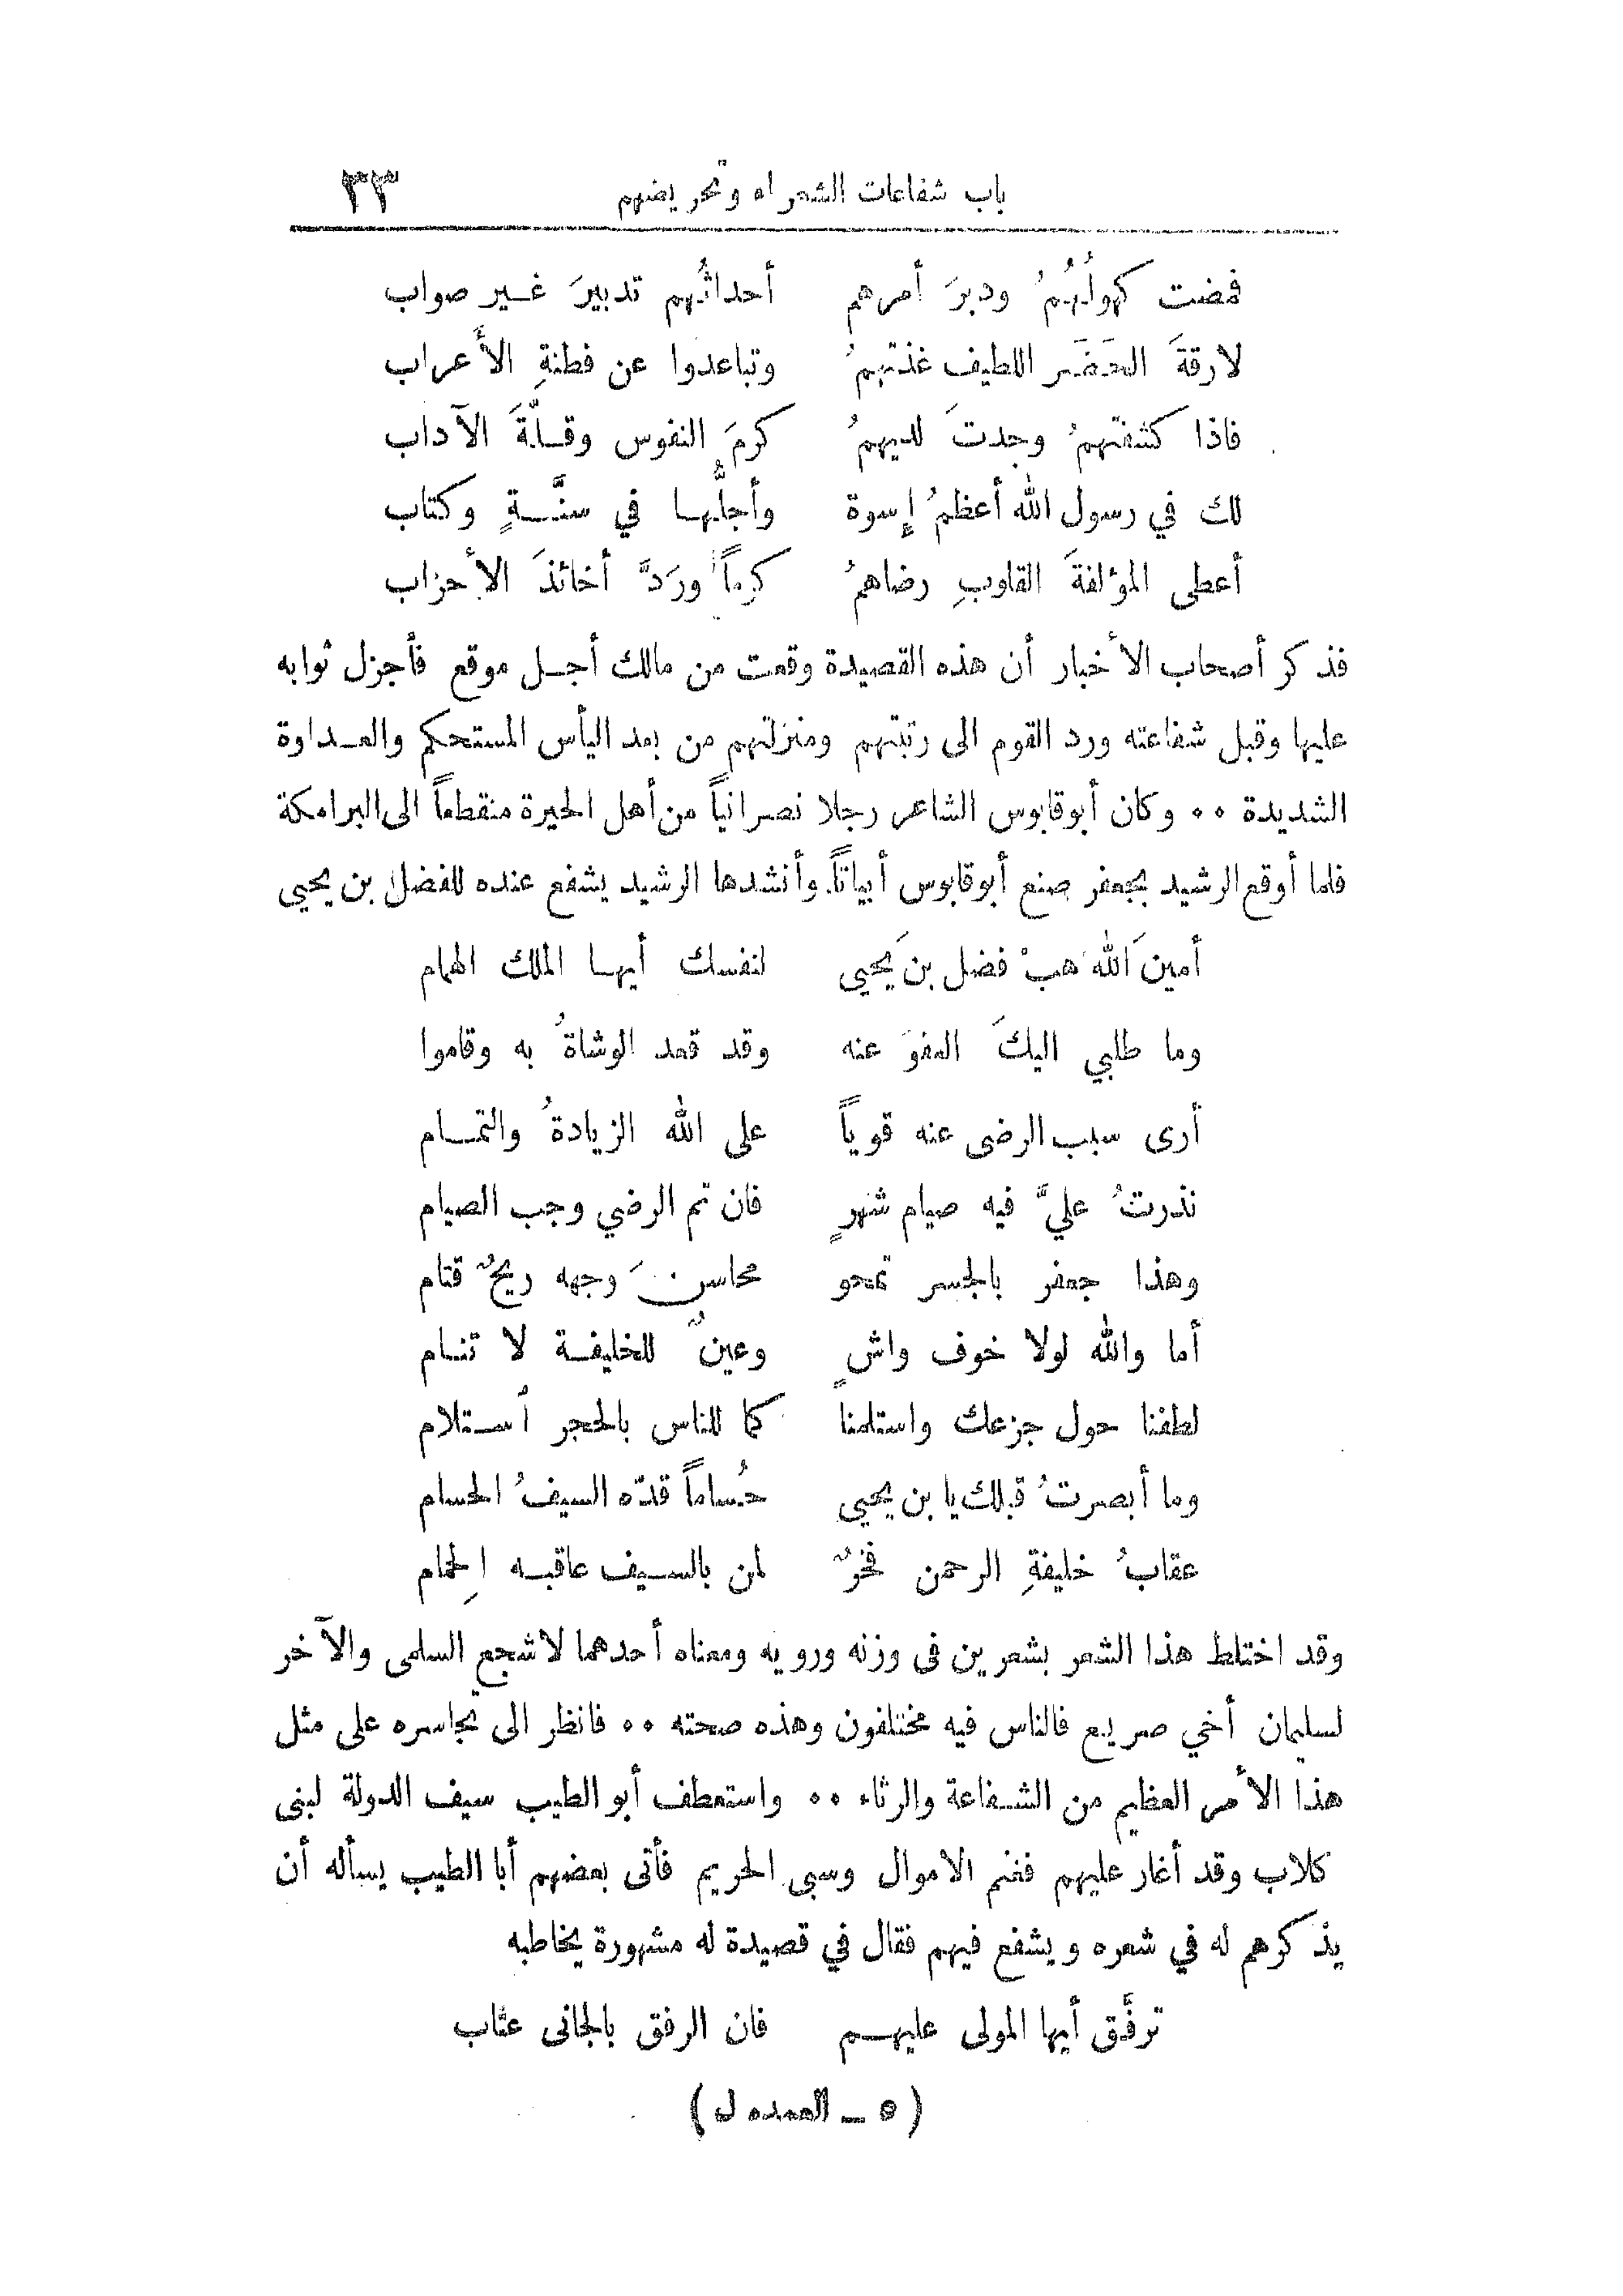 باب شفاعات الشعراء وتحريضهم ٣٣
فمضت كهولُهُمُ ودبرَ أمرهم أحداثُهم تدبيرَ غير صواب
لا رقةَ الحَضَر اللطيف غذتهمُ وتباعدوا عن فطنةِ الأعراب
فاذا كشفتهمُ وجدتَ لديهمُ كرمَ النفوس وقلّةَ الآداب
لك في رسول الله أعظمُ إسوة وأجلُّها في سنَّةٍ وكتاب
أعطى المؤلفةَ القلوبِ رضاهمُ كرماً ورَدَّ أخائذَ الأحزاب
فذكر أصحاب الأخبار أن هذه القصيدة وقعت من مالك أجل موقع فأجزل ثوابه
عليها وقبل شفاعته ورد القوم الى رتبتهم ومنزلتهم من بعد اليأس المستحكم والعداوة
الشديدة ٠٠ وكان أبوقابوس الشاعر رجلا نصرانياً من أهل الحيرة منقطعاً الى البرامكة
فلما أوقع الرشيد بجعفر صنع أبوقابوس أبياتاً وأنشدها الرشيد يشفع عنده للفضل بن يحيى
أمينَ الله هبْ فضل بن يحيى لنفسك أيها الملك الهمام
وما طلبي اليكَ العفوَ عنه وقد قعد الوشاةُ به وقاموا
أرى سبب الرضى عنه قوياً على الله الزيادةُ والتمام
نذرتُ عليَّ فيه صيام شهرٍ فان تم الرضي وجب الصيام
وهذا جعفر بالجسر تمحو محاسنَ وجهه ريحٌ قتام
أما والله لولا خوف واشٍ وعينٌ للخليفة لا تنام
لطفْنا حول جزعك واستلمنا كما للناس بالحجر أستلام
وما أبصرتُ قبلك يا بن يحيى حُساماً قدّه السيفُ الحسام
عقابُ خليفةِ الرحمن فخرٌ لمن بالسيف عاقبه الِحمام
وقد اختلط هذا الشعر بشعرين فى وزنه ورويه ومعناه أحدهما لاشجع السلمى والآخر
لسليمان أخي صريع فالناس فيه مختلفون وهذه صحته ٠٠ فانظر الى تجاسره على مثل
هذا الأمر العظيم من الشفاعة والرثاء ٠٠ واستعطف أبو الطيب سيف الدولة لبنى
كلاب وقد أغار عليهم فغنم الاموال وسبى الحريم فأتى بعضهم أبا الطيب يسأله أن
يذكرهم له في شعره ويشفع فيهم فقال في قصيدة له مشهورة يخاطبه
ترفَّق أيها المولى عليهم فان الرفق بالجانى عتاب
( ٥ ــ العمده ل )